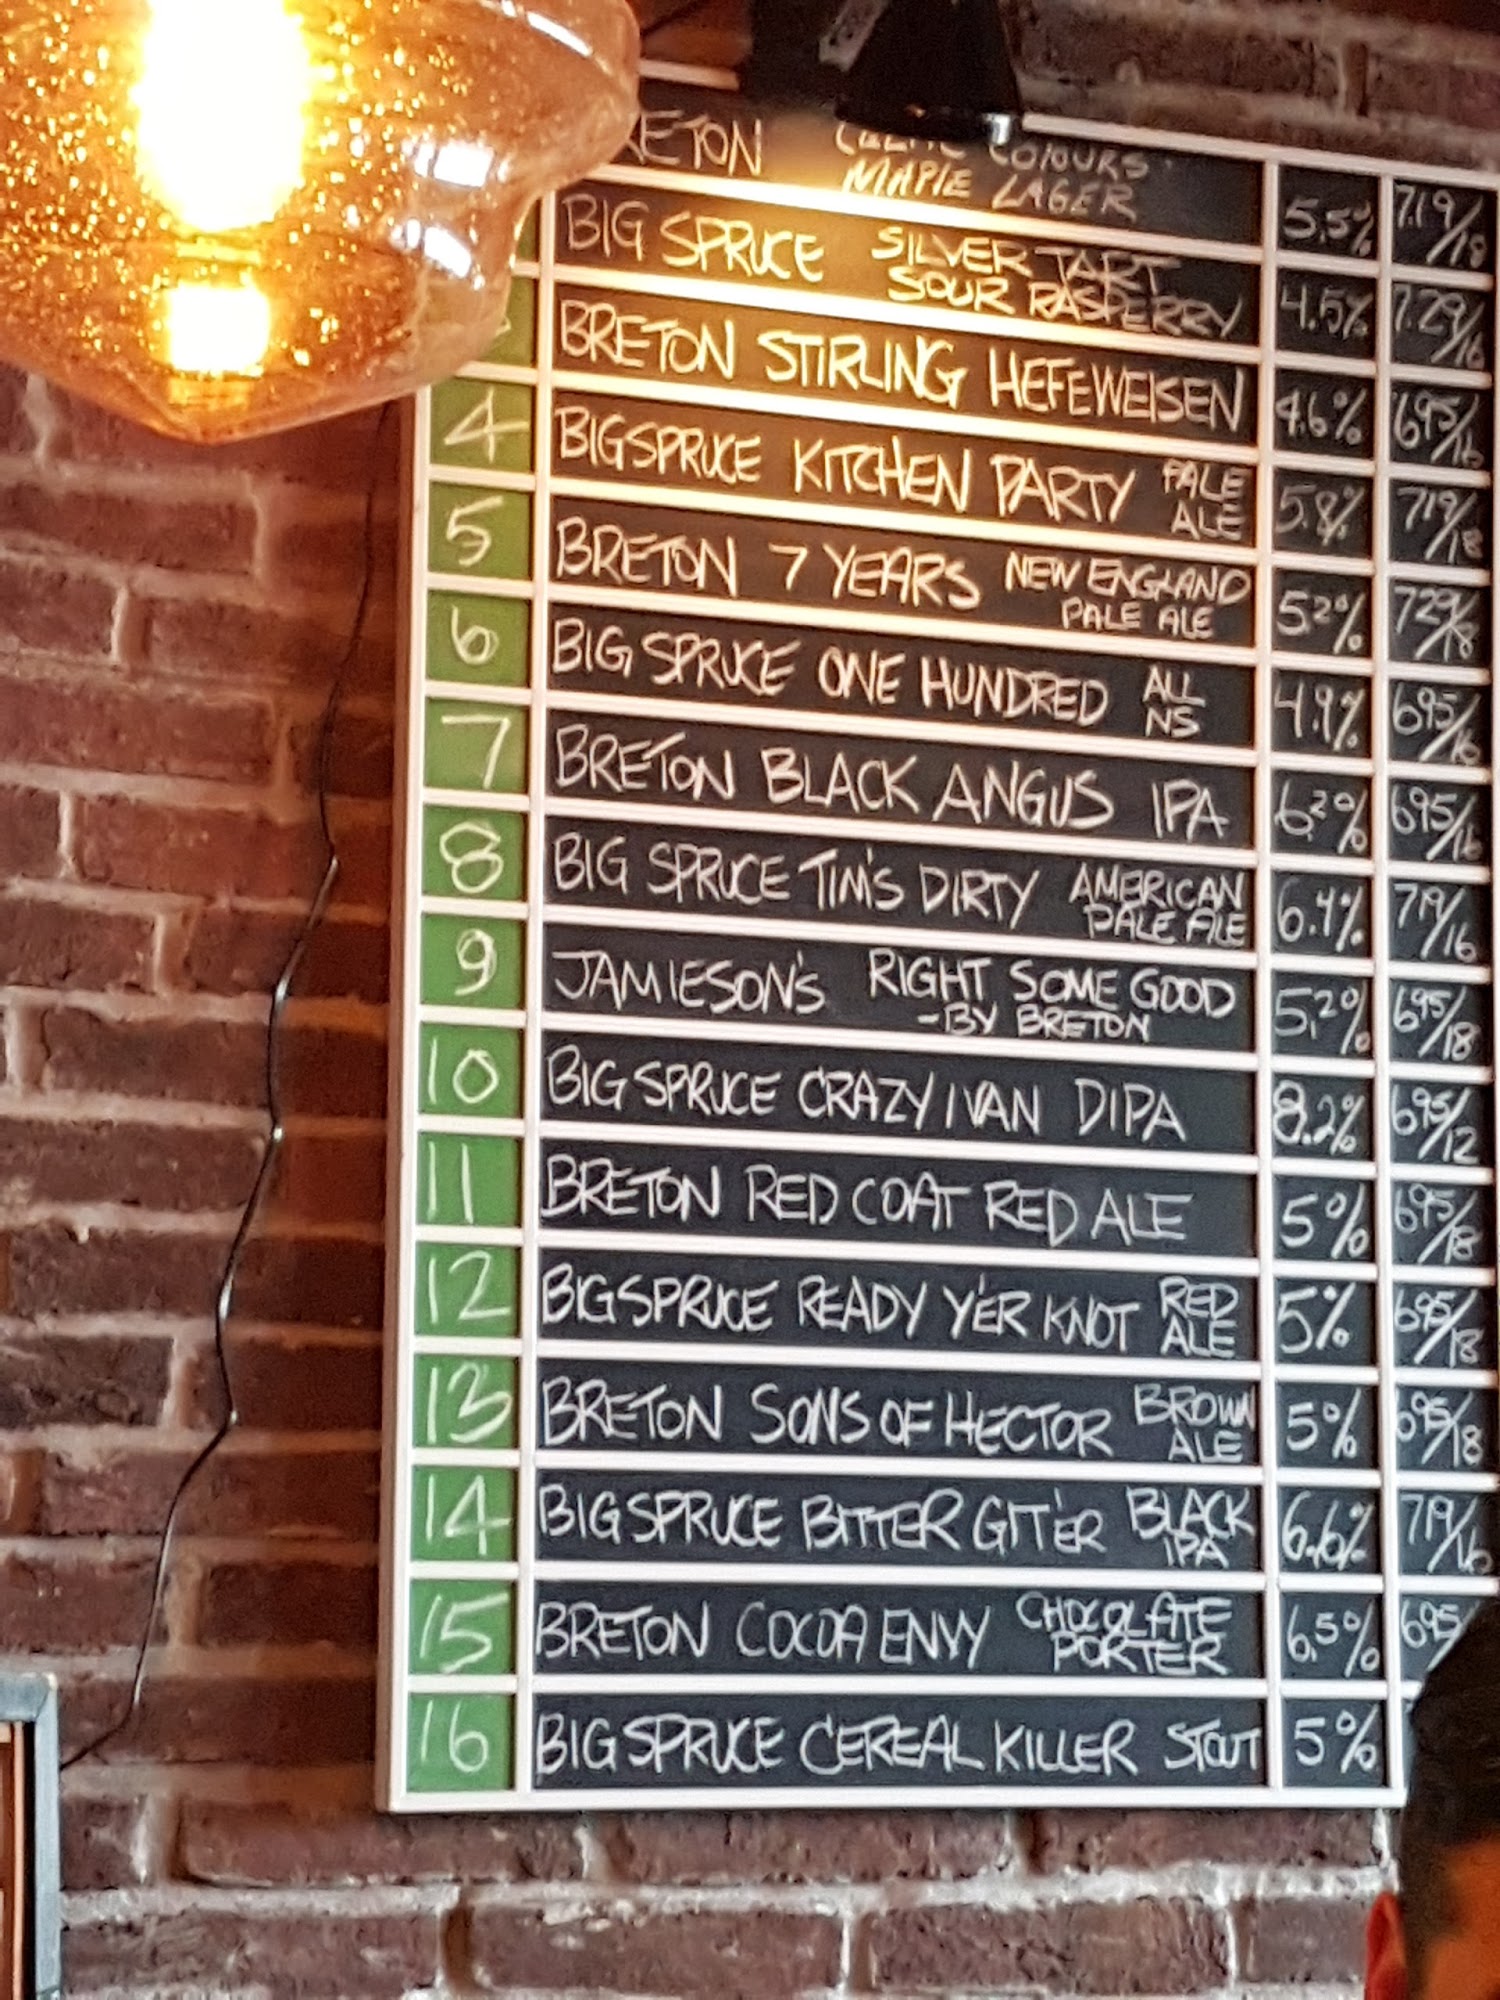 BRETON CELTIC COLOURS
MAPLE LAGER 5.5% 7.19/18
BIG SPRUCE SILVER TART
SOUR RASPERRY 4.5% 7.29/16
BRETON STIRLING HEFEWEISEN 4.6% 695/16
4 BIG SPRUCE KITCHEN PARTY PALE
ALE 5.8% 719/18
5 BRETON 7 YEARS NEW ENGLAND
PALE ALE 5.2% 729/18
6 BIG SPRUCE ONE HUNDRED ALL
NS 4.9% 695/16
7 BRETON BLACK ANGUS IPA 6.2% 695/16
8 BIG SPRUCE TIM'S DIRTY AMERICAN
PALE ALE 6.4% 719/16
9 JAMIESON'S RIGHT SOME GOOD
-BY BRETON 5.2% 695/18
10 BIG SPRUCE CRAZY IVAN DIPA 8.2% 695/12
11 BRETON RED COAT RED ALE 5% 695/18
12 BIG SPRUCE READY YE'R KNOT RED
ALE 5% 695/18
13 BRETON SONS OF HECTOR BROWN
ALE 5% 695/18
14 BIG SPRUCE BITTER GIT'ER BLACK
IPA 6.6% 719/16
15 BRETON COCOA ENVY CHOCOLATE
PORTER 6.5% 695/
16 BIG SPRUCE CEREAL KILLER STOUT 5%